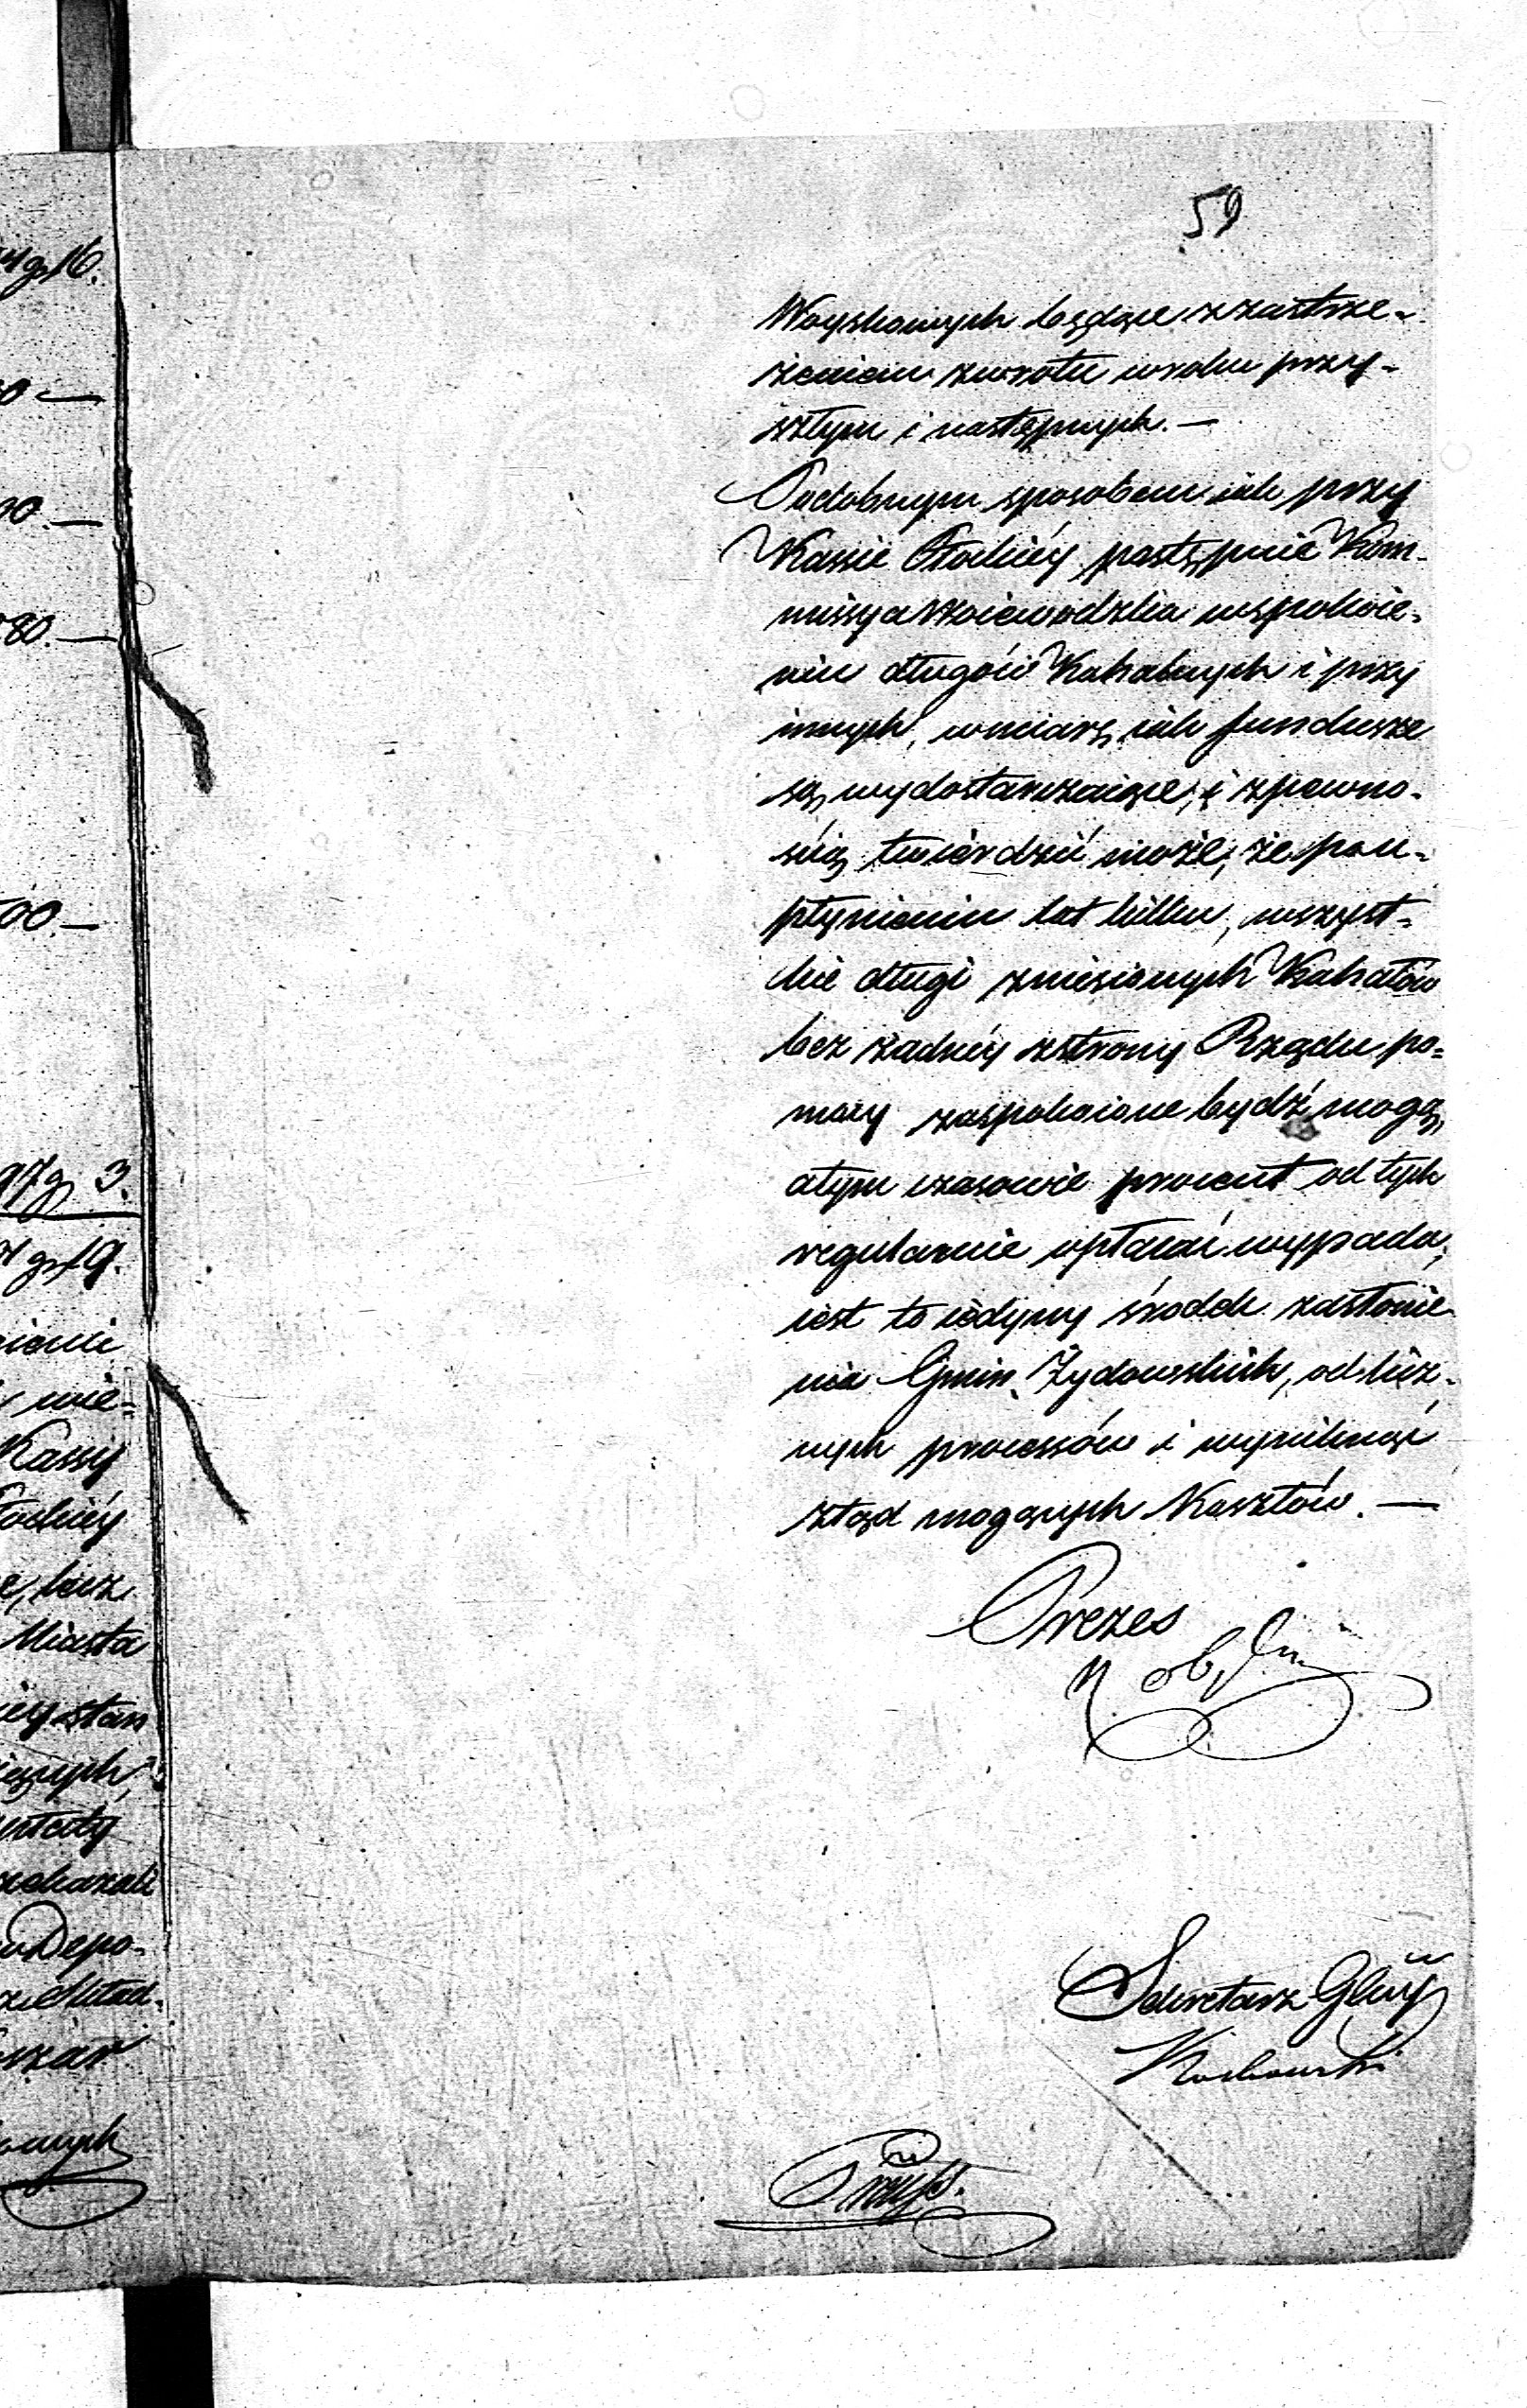 59
Woyskowych będące z zastrze-
żeniem zwrotu w roku przy-
szłym i następnych. —
Podobnym sposobem iak przy
Kassie Płockiéy postępuie Kom-
missya Woiewodzka w spokoie-
niu długów Kahalnych i przy
innych, w miarę iak fundusze
są wydostarczaiące, i z pewno-
ścią twierdzić może, że po u-
płynieniu lat kilku, wszyst-
kie długi zniesionych Kahałów
bez żadnéy z strony Rządu po-
mocy zaspokoione bydź mogą,
a tym czasowie procent od tych
regularnie opłacać wypada,
iest to iedyny środek zasłonie
nia Gmin Żydowskich, od licz-
nych processów i wyniknąć
ztąd mogących Kosztów. —
Prezes
Sekretarz Glny
4 gr 16.
0 —
00. —
80. —
00. —
97 gr 3.
gr 19.
nie-
Kassy
Płockiéy
, lecz
Miasta
stan
w Depo-